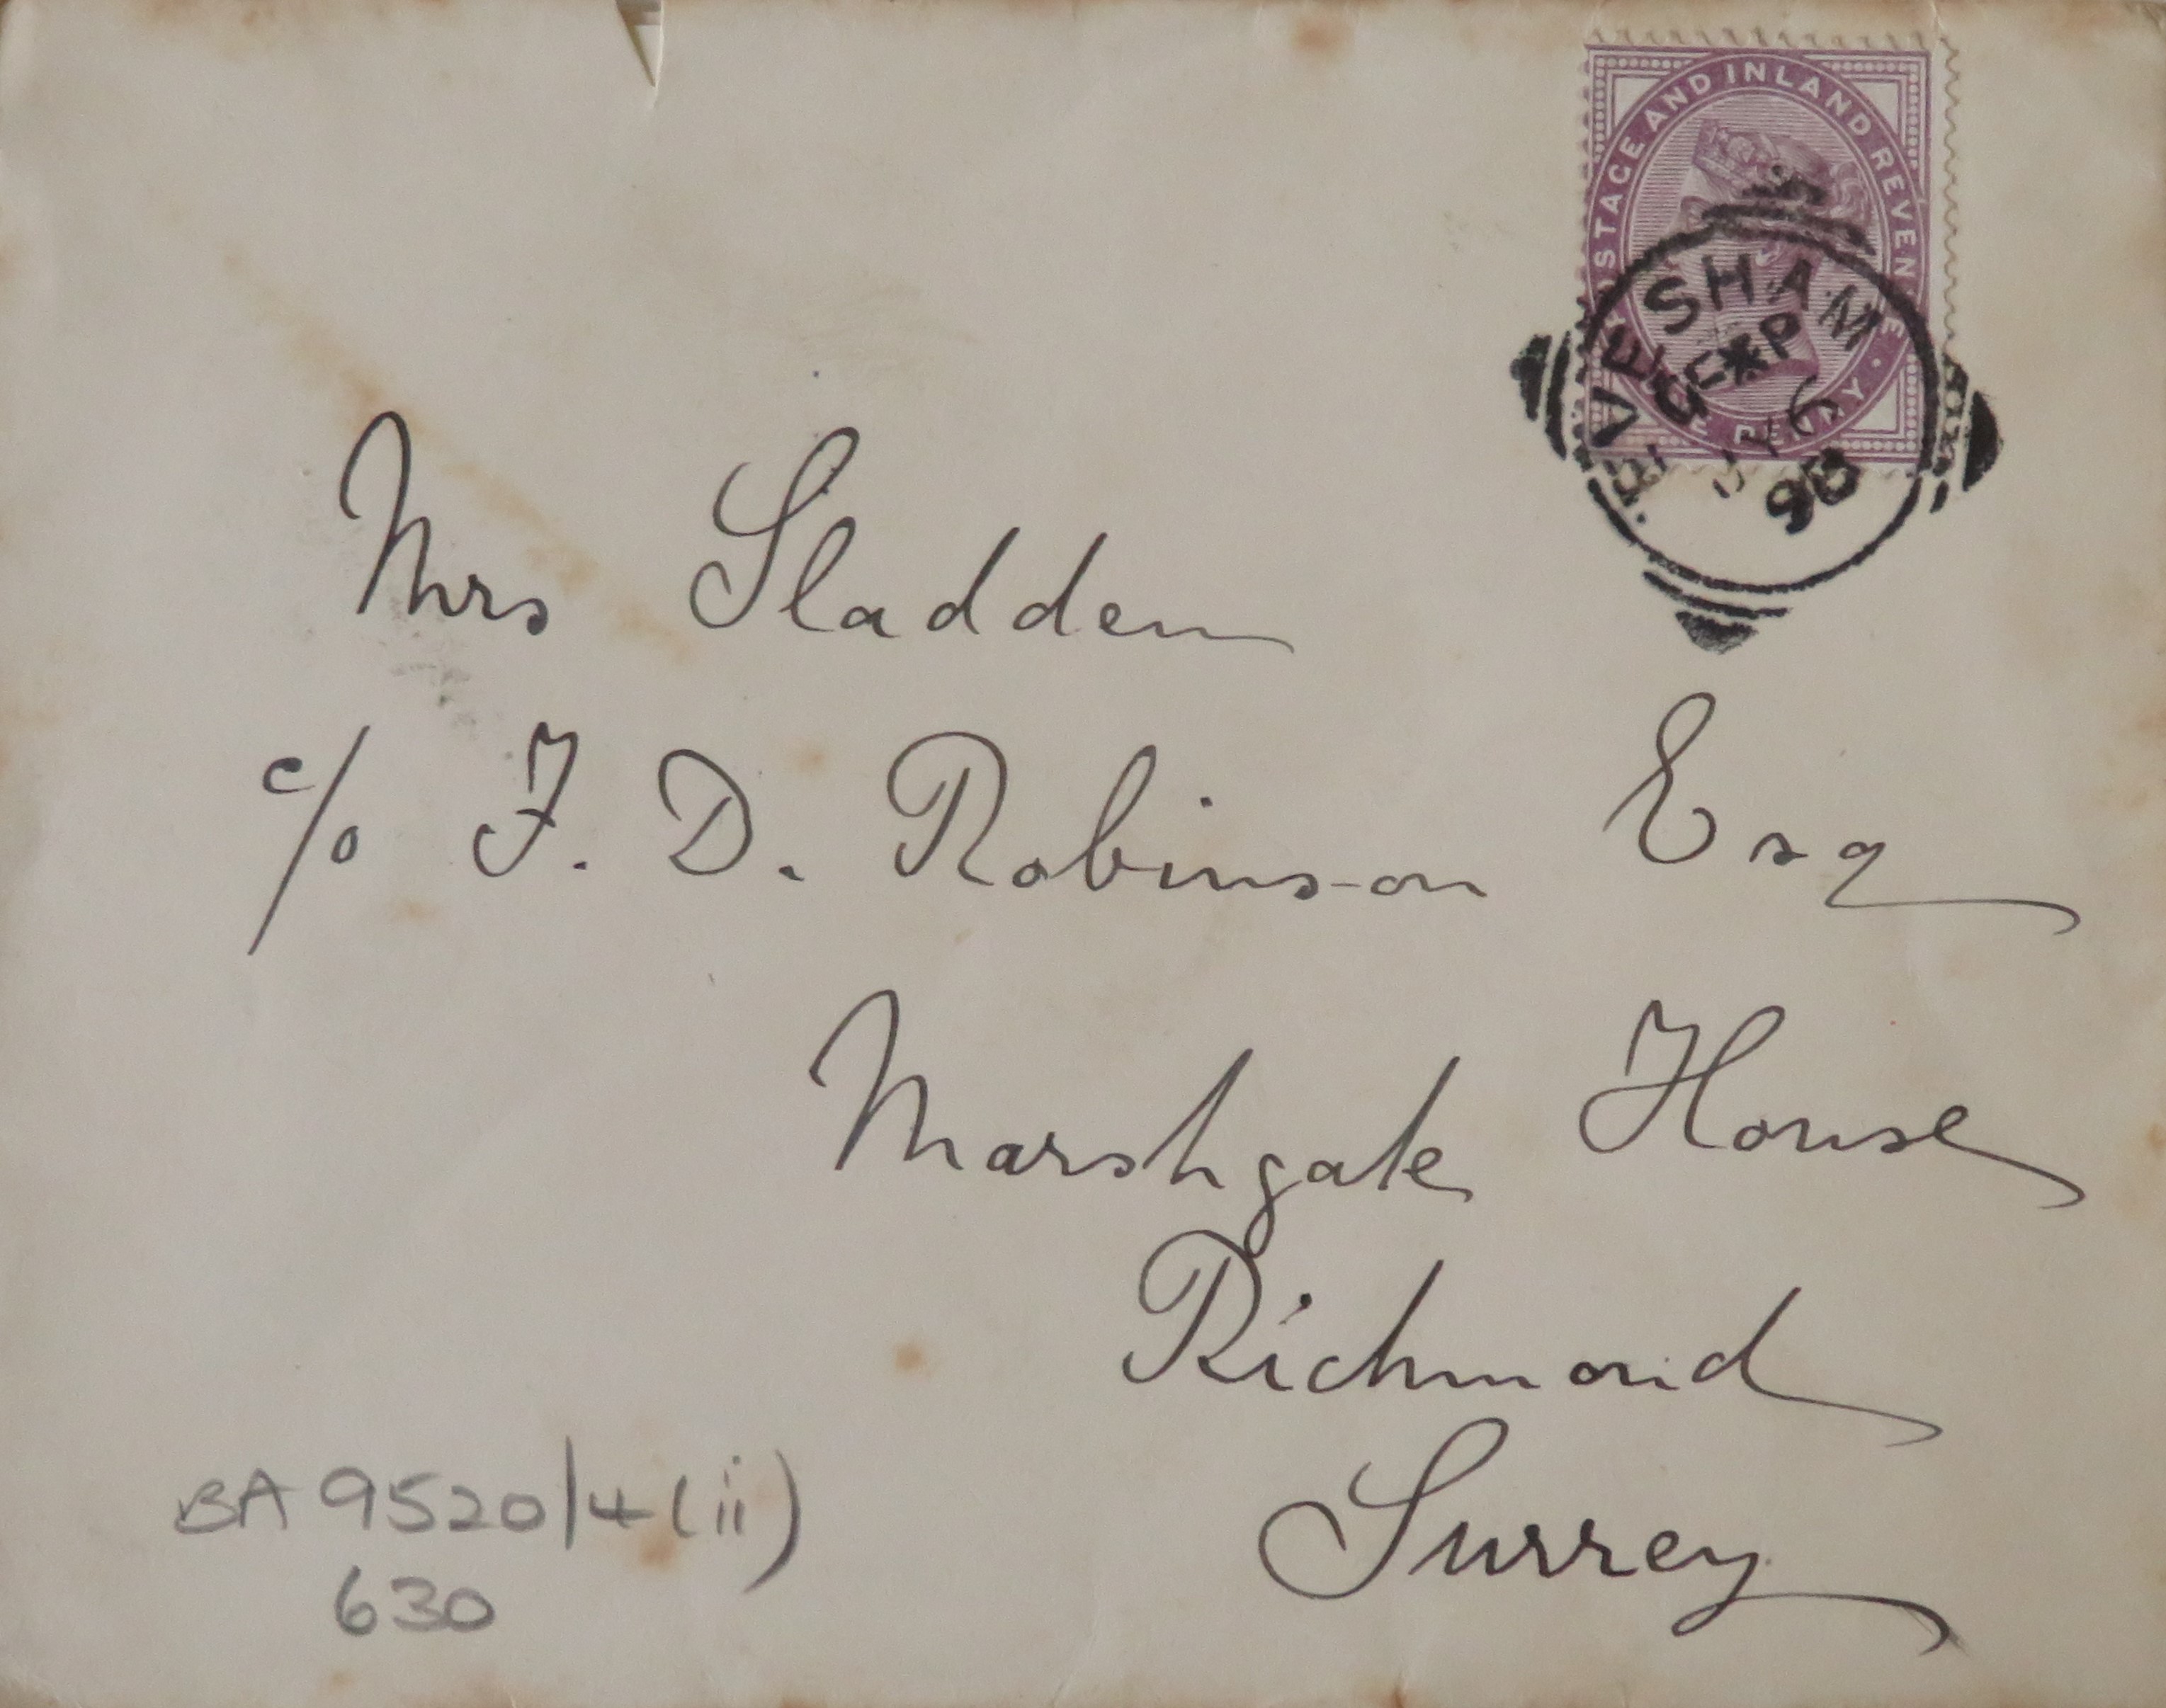 POSTAGE AND INLAND REVENUE
PENNY
EVESHAM
98
Mrs Sladden
c/o F. D. Robinson Esq
Marshgate House
Richmond
Surrey
BA 9520/4(ii)
630